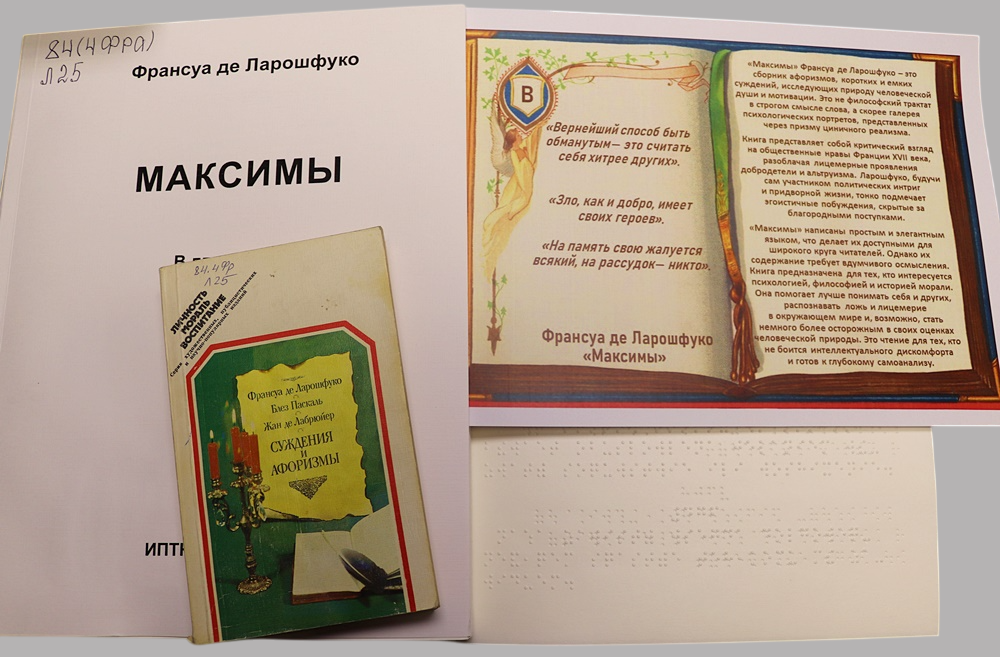 84(4Фра)
Л25
Франсуа де Ларошфуко
МАКСИМЫ
84.4Фр
Л25
ЛИЧНОСТЬ
МОРАЛЬ
ВОСПИТАНИЕ
Серия художественных, публицистических
и научно-популярных изданий
Франсуа де Ларошфуко
Блез Паскаль
Жан де Лабрюйер
СУЖДЕНИЯ
И
АФОРИЗМЫ
В
«Вернейший способ быть
обманутым— это считать
себя хитрее других».
«Зло, как и добро, имеет
своих героев».
«На память свою жалуется
всякий, на рассудок— никто».
Франсуа де Ларошфуко
«Максимы»
«Максимы» Франсуа де Ларошфуко – это
сборник афоризмов, коротких и емких
суждений, исследующих природу человеческой
души и мотивации. Это не философский трактат
в строгом смысле слова, а скорее галерея
психологических портретов, представленных
через призму циничного реализма.
Книга представляет собой критический взгляд
на общественные нравы Франции XVII века,
разоблачая лицемерные проявления
добродетели и альтруизма. Ларошфуко, будучи
сам участником политических интриг
и придворной жизни, тонко подмечает
эгоистичные побуждения, скрытые за
благородными поступками.
«Максимы» написаны простым и элегантным
языком, что делает их доступными для
широкого круга читателей. Однако их
содержание требует вдумчивого осмысления.
Книга предназначена для тех, кто интересуется
психологией, философией и историей морали.
Она помогает лучше понимать себя и других,
распознавать ложь и лицемерие
в окружающем мире и, возможно, стать
немного более осторожным в своих оценках
человеческой природы. Это чтение для тех, кто
не боится интеллектуального дискомфорта
и готов к глубокому самоанализу.